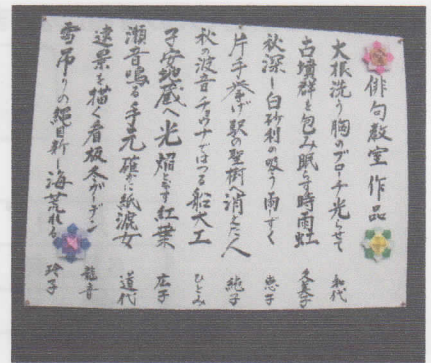 俳句教室 作品
大根洗う胸のブローチ光らせて 和代
古墳群を包み眠らす時雨虹 久美子
秋深し白砂利の吸う雨しずく 恵子
片手挙げ駅の聖樹へ消えた人 純子
秋の波音チョウナではつる船大工 ひとみ
子安地蔵へ光焔となす紅葉 広子
瀬音鳴る手元確かに紙漉女 道代
遠景を描く看板冬ガーデン 龍音
雪吊りの縄目新し海荒れる 玲子